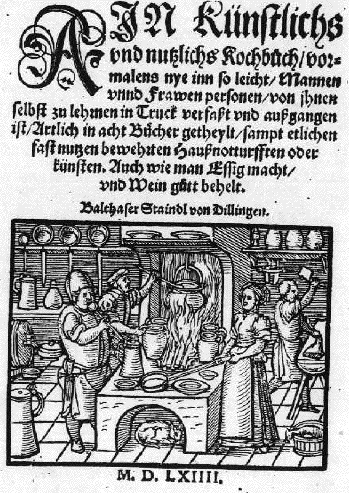 AIN Künstlichs
vnd nutzlichs Kochbůch/vor-
malens nye inn so leicht/Mannen
vnnd Frawen personen/von jhnen
selbst zu lehrnen in Truck verfaßt vnd außgangen
ist/Artlich in acht Bücher getheylt/sampt etlichen
fast nutzen bewehrten Haußnotturfften oder
künsten. Auch wie man Essig macht/
vnd Wein gůtt behelt.
Balthaser Staindl von Dillingen.
M. D. LXIIII.